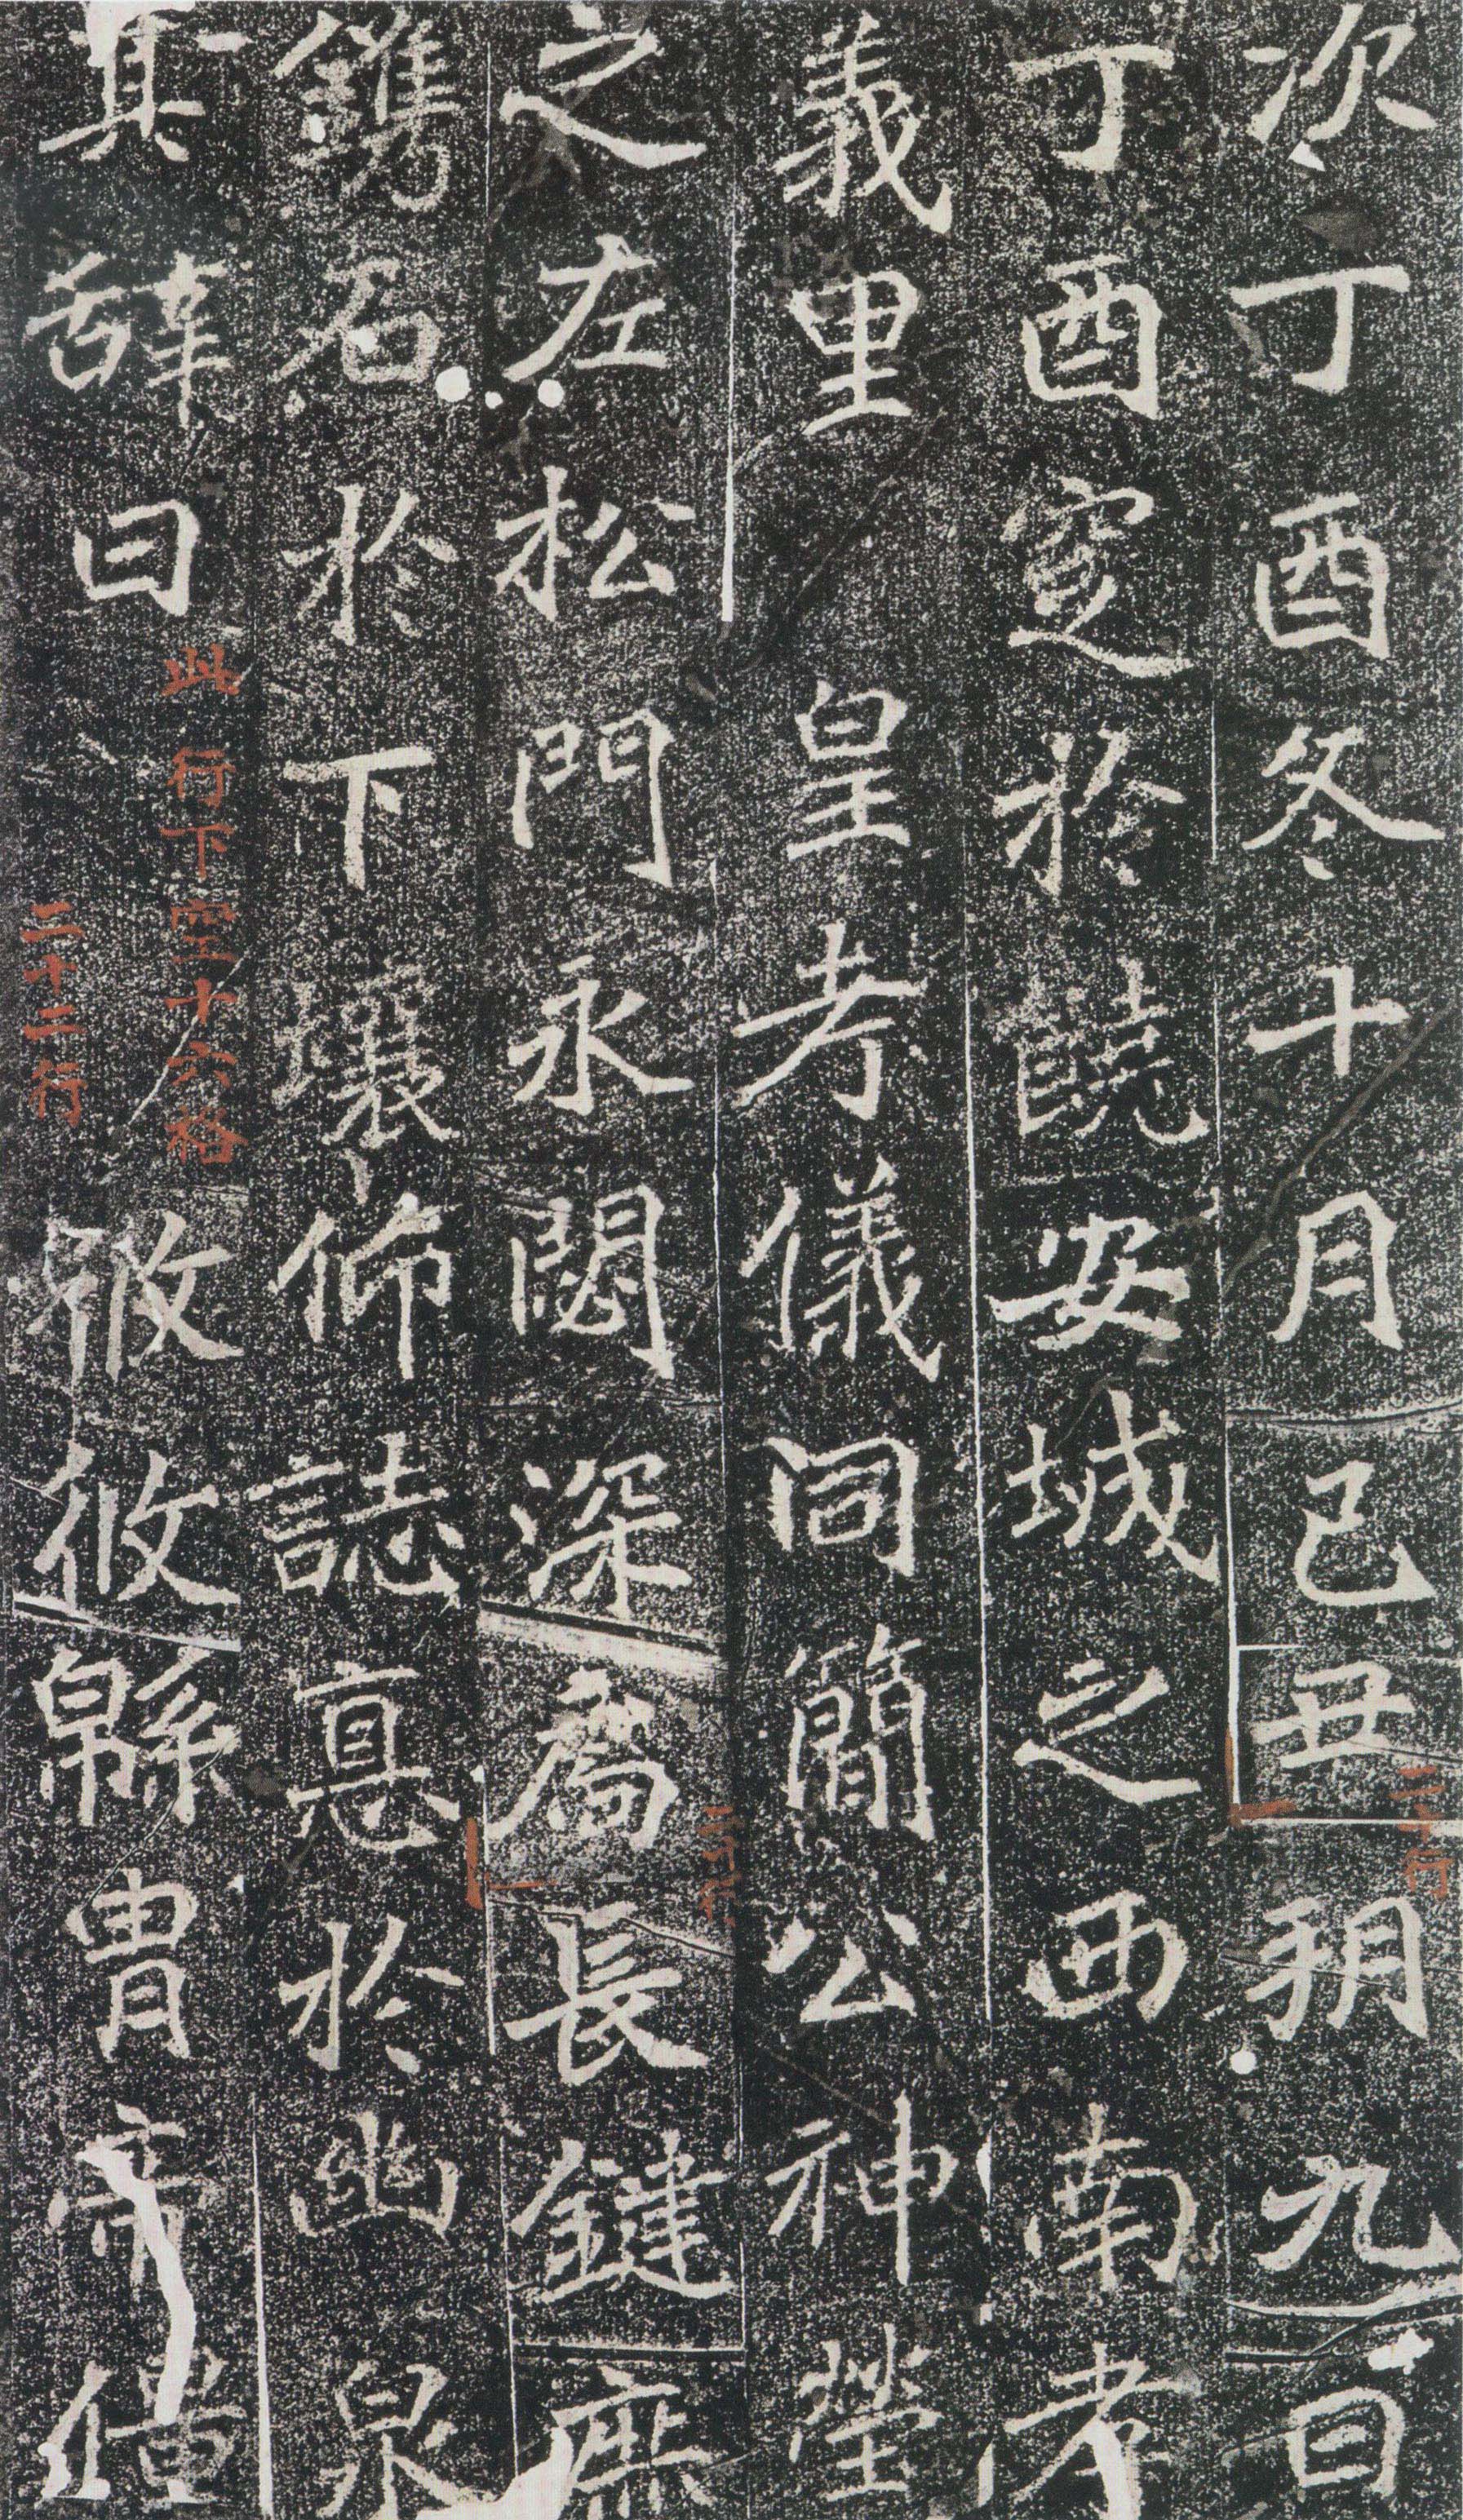 次丁酉冬十月己丑朔九日
二十行
丁酉窆於饒安城之西南孝
義里 皇考儀同簡公神塋
之左松門永閟深扃長鍵庶
鐫石於下壤仰誌悳於幽泉
其辭曰
此行下空十六格
二十二行
攸攸緜胄帝